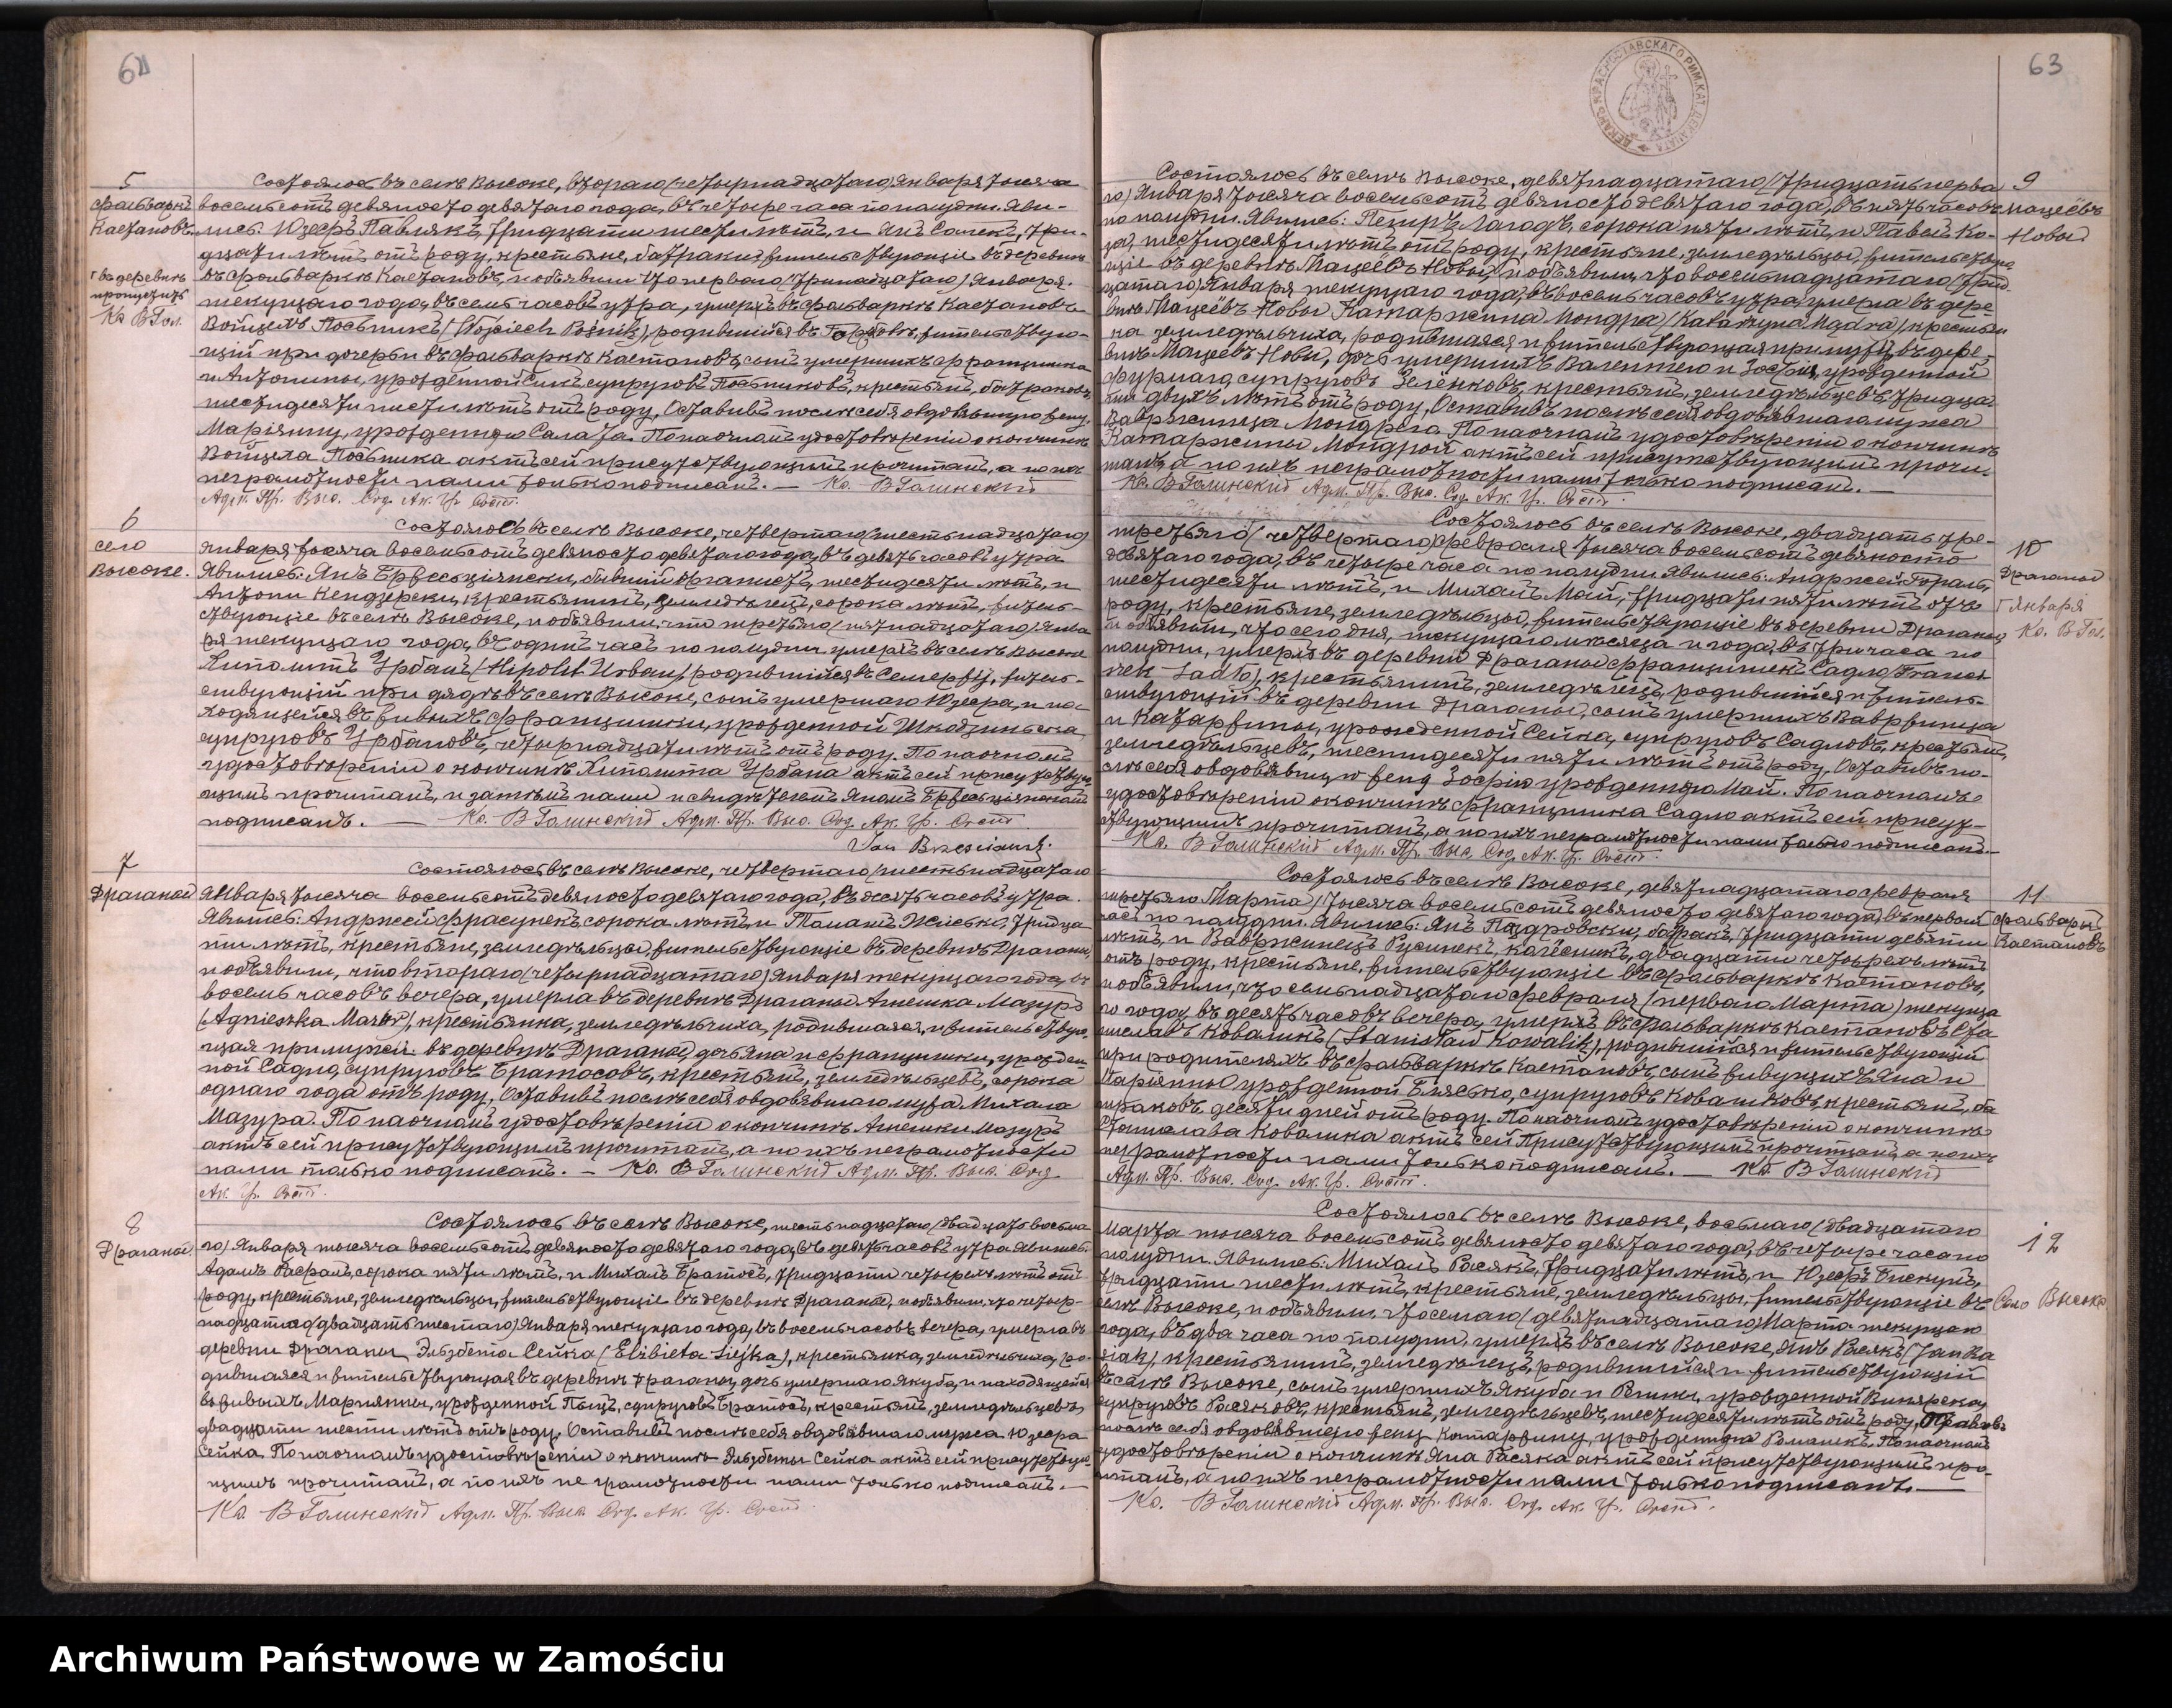 62
5
фольваркъ
Каетановъ.
въ деревнѣ
пропустить
Кс. В Гол.
Состоялось въ селѣ Высокe, втораго (четырнадцатаго) Января тысяча
восемьсотъ девяносто девятаго года, въ четыре часа по полудни. Яви-
лись: Юзефъ Павлякъ, тридцати шести лѣтъ, и Янъ Солекъ, три-
дцати лѣтъ отъ роду, крестьяне, батраки, жительствующіе въ деревнѣ
въ фольваркѣ Каетановъ, и объявили что перваго (тринадцатаго) Января
текущаго года, въ семь часовъ утра, умеръ въ фольваркѣ Каетановъ
Войцехъ Посьникъ (Wojciech Pośnik), родившійся въ жительствую-
щій при дочери въ фольваркѣ Каетановъ, сынъ умершихъ Францишка
и Антонины, урожденной супруговъ Посьниковъ, крестьянъ, батраковъ,
шестидесяти шести лѣтъ отъ роду, Оставивъ послѣ себя овдовѣвшую жену
Маріянну, урожденную Салата. По наочномъ удостовѣреніи о кончинѣ
Войцеха Посьника актъ сей присутствующимъ прочитанъ, а по ихъ
неграмотности нами только подписанъ. — Кс. В Голинскій
Адм. Пр. Выс. Сод. Ак. Гр. Сост.
6
село
Высоке.
Состоялось въ селѣ Высоке, четвертаго (шестьнадцатаго)
Января тысяча восемьсотъ девяносто девятаго года, въ девять часовъ утра.
Явились: Янъ Бржесьціянски, бывшій органистъ, шестидесяти лѣтъ, и
Антони Кендзерски, крестьянинъ, земледѣлецъ, сорока лѣтъ, житель-
ствующіе въ селѣ Высоке, и объявили, что третьяго (пятнадцатаго) Янва
ря текущаго года, въ одинъ часъ по полудни, умеръ въ селѣ Высоке
Хиполитъ Урбанъ (Hipolit Urban), родившійся въ житель-
ствующій при дядѣ въ селѣ Высоке, сынъ умершаго Юзефа, и на-
ходящейся въ живыхъ Францишки, урожденной
супруговъ Урбановъ, четырнадцати лѣтъ отъ роду. По наочномъ
удостовѣреніи о кончинѣ Хиполита Урбана актъ сей присутствую
щимъ прочитанъ, и затѣмъ нами и свидѣтелемъ Яномъ Бржесьціянскимъ
подписанъ. — Кс. В Голинскій Адм. Пр. Выс. Сод. Ак. Гр. Сост.
Jan Brzesciański.
7
Драганы
Состоялось въ селѣ Высоке, четвертаго (шестьнадцатаго)
Января тысяча восемьсотъ девяносто девятаго года, въ десять часовъ утра.
Явились: Андржей Фрасунекъ, сорока лѣтъ, и Томашъ тридца
ти лѣтъ, крестьяне, земледѣльцы, жительствующіе въ деревнѣ Драганы,
и объявили, что втораго (четырнадцатаго) Января текущаго года, въ
восемь часовъ вечера, умерла въ деревнѣ Драганы Агнешка Мазуръ
(Agnieszka Mazur), крестьянка, земледѣльчиха, родившаяся и жительствую-
щая при мужѣ въ деревнѣ Драганы, дочь Яна и Францишки, урожден-
ной Садло, супруговъ Братосовъ, крестьянъ, земледѣльцевъ, сорока
одного года отъ роду, Оставивъ послѣ себя овдовѣвшаго мужа Михала
Мазура. По наочномъ удостовѣреніи о кончинѣ Агнешки Мазуръ
актъ сей присутствующимъ прочитанъ, а по ихъ неграмотности
нами только подписанъ. — Кс. В Голинскій Адм. Пр. Выс. Сод.
Ак. Гр. Сост.
8
Драганы.
Состоялось въ селѣ Высоке, шестьнадцатаго (двадцать восьма
го) Января тысяча восемьсотъ девяносто девятаго года, въ девять часовъ утра. Явились:
Адамъ Рафалъ, сорока пяти лѣтъ, и Михалъ Братосъ, тридцати четырехъ лѣтъ отъ
роду, крестьяне, земледѣльцы, жительствующіе въ деревнѣ Драганы, и объявили, что четыр-
надцатаго (двадцать шестаго) Января текущаго года, въ восемь часовъ вечера, умерла въ
деревни Драганы Эльзбета Сейка (Elżbieta Siejka), крестьянка, земледѣльчиха, ро-
дившаяся и жительствующая въ деревнѣ Драганы, дочь умершаго Якуба, и находящейся
въ живыхъ Маріянны, урожденной супруговъ Братосъ, крестьянъ, земледѣльцевъ,
двадцати шести лѣтъ отъ роду. Оставивъ послѣ себя овдовѣвшаго мужа Юзефа
Сейка. По наочномъ удостовѣреніи о кончинѣ Эльзбеты Сейка актъ сей присутствую-
щимъ прочитанъ, а по ихъ неграмотности нами только подписанъ. —
Кс. В Голинскій Адм. Пр. Выс. Сод. Ак. Гр. Сост.
63
ДЕКАНЪ КРАСНОСТАВСКАГО РИМ. КАТ. ДЕКАНАТА
9
Мацеёвъ
Новы
Состоялось въ селѣ Высоке, девятнадцатаго (тридцать перва
го) Января тысяча восемьсотъ девяносто девятаго года, въ пять часовъ
по полудни. Явились: Петръ Лагодъ, сорока пяти лѣтъ, и Павелъ Ко-
за, шестидесяти лѣтъ отъ роду, крестьяне, земледѣльцы, жительствую-
щіе въ деревнѣ Мацеёвъ Новы, и объявили, что восемьнадцатаго (трид-
цатаго) Января текущаго года, въ восемь часовъ утра, умерла въ дере-
внѣ Мацеёвъ Новы Катаржина Мондра (Katarzyna Mądra), крестьян
ка земледѣльчиха, родившаяся и жительствующая при мужѣ, въ дере-
внѣ Мацеёвъ Новы, дочь умершихъ Валентего и Зофіи, урожденной
супруговъ Зелёнковъ, крестьянъ, земледѣльцевъ, тридца
ти двухъ лѣтъ отъ роду, Оставивъ послѣ себя овдовѣвшаго мужа
Вавржинца Мондрего. По наочномъ удостовѣреніи о кончинѣ
Катаржины Мондрой актъ сей присутствующимъ прочи-
танъ, а по ихъ неграмотности нами только подписанъ. —
Кс. В Голинскій Адм. Пр. Выс. Сод. Ак. Гр. Сост.
10
Драганы
Января
Кс. В Гол.
Состоялось въ селѣ Высоке, двадцать тре-
третьяго (четвертаго) Февраля тысяча восемьсотъ девяносто
девятаго года, въ четыре часа по полудни. Явились: Андржей Гораль,
шестидесяти лѣтъ, и Михалъ Май, тридцати пяти лѣтъ отъ
роду, крестьяне, земледѣльцы, жительствующіе въ деревни Драганы,
и объявили, что сегодня, текущаго мѣсяца и года, въ три часа по
полудни, умеръ въ деревни Драганы Францишекъ Садло (Francis-
zek Sadło), крестьянинъ, земледѣлецъ, родившійся и житель-
ствующій въ деревни Драганы, сынъ умершихъ Вавржинца
и Катаржины, урожденной Сейка, супруговъ Садловъ, крестьянъ,
земледѣльцевъ, шестидесяти пяти лѣтъ отъ роду, Оставивъ по-
слѣ себя овдовѣвшую жену Зофію урожденную Май. По наочномъ
удостовѣреніи о кончинѣ Францишка Садло актъ сей присут-
ствующимъ прочитанъ, а по ихъ неграмотности нами только подписанъ. —
Кс. В Голинскій Адм. Пр. Выс. Сод. Ак. Гр. Сост.
11
фольваркъ
Каетановъ
Состоялось въ селѣ Высоке, девятнадцатаго Февраля
(третьяго Марта) тысяча восемьсотъ девяносто девятаго года, въ первый
часъ по полудни. Явились: Янъ батракъ, тридцати девяти
лѣтъ, и Вавржинецъ Русинекъ, двадцати четырехъ лѣтъ
отъ роду, крестьяне, жительствующіе въ фольваркѣ Каетановъ,
и объявили, что семьнадцатаго Февраля (перваго Марта) текуща
го года, въ десять часовъ вечера, умеръ въ фольваркѣ Каетановъ Ста
ниславъ Коваликъ (Stanisław Kowalik), родившійся и жительствующій
при родителяхъ въ фольваркѣ Каетановъ, сынъ живущихъ Яна и
Маріянны урожденной супруговъ Коваликовъ, крестьянъ, ба
траковъ, десяти дней отъ роду. По наочномъ удостовѣреніи о кончинѣ
Станислава Ковалика актъ сей присутствующимъ прочитанъ, а по ихъ
неграмотности нами только подписанъ. — Кс. В Голинскій
Адм. Пр. Выс. Сод. Ак. Гр. Сост.
12
Село Высоке
Состоялось въ селѣ Высоке, восьмаго (двадцатаго)
Марта тысяча восемьсотъ девяносто девятаго года, въ четыре часа по
полудни. Явились: Михалъ Расякъ, тридцати лѣтъ, и Юзефъ Бискупъ,
тридцати шести лѣтъ, крестьяне, земледѣльцы, жительствующіе въ
селѣ Высоке, и объявили, что седмаго (девятнадцатаго) Марта текущаго
года, въ два часа по полудни, умеръ въ селѣ Высоке, Янъ Расякъ (Jan Ra
siak), крестьянинъ, земледѣлецъ, родившійся и жительствующій
въ селѣ Высоке, сынъ умершихъ Якуба и урожденной
супруговъ Расяковъ, крестьянъ, земледѣльцевъ, шестидесяти лѣтъ отъ роду, Оставивъ
послѣ себя овдовѣвшую жену Катаржину, урожденную Романекъ. По наочномъ
удостовѣреніи о кончинѣ Яна Расяка актъ сей присутствующимъ про-
читанъ, а по ихъ неграмотности нами только подписанъ. —
Кс. В Голинскій Адм. Пр. Выс. Сод. Ак. Гр. Сост.
Archiwum Państwowe w Zamościu